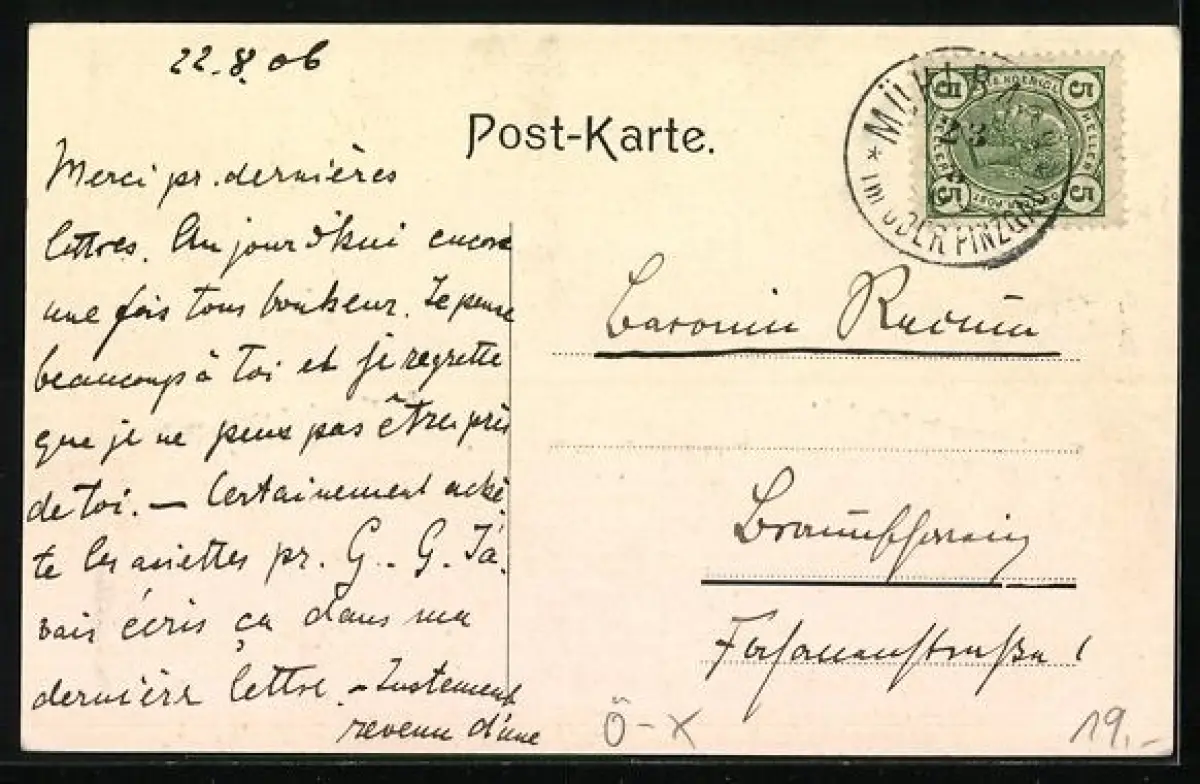 22.8.06
Post-Karte.
Merci pr. dernières
lettres. Au jour d'hui encore
une fois tous bonheur. Je pense
beaucoup à toi et je regrette
que je ne peux pas être près
de toi. — Certainement achè-
te les assiettes pr. G.. G. J'a-
vais écris ça dans ma
dernière lettre. — Justement
revenu d'une
MÜHLBA
23
* IM OBER PINZGAU
5 5 5 5
HELLER HELLER
Baronin
Braunschweig
Fasanenstraße 1
Ö-X
19.-